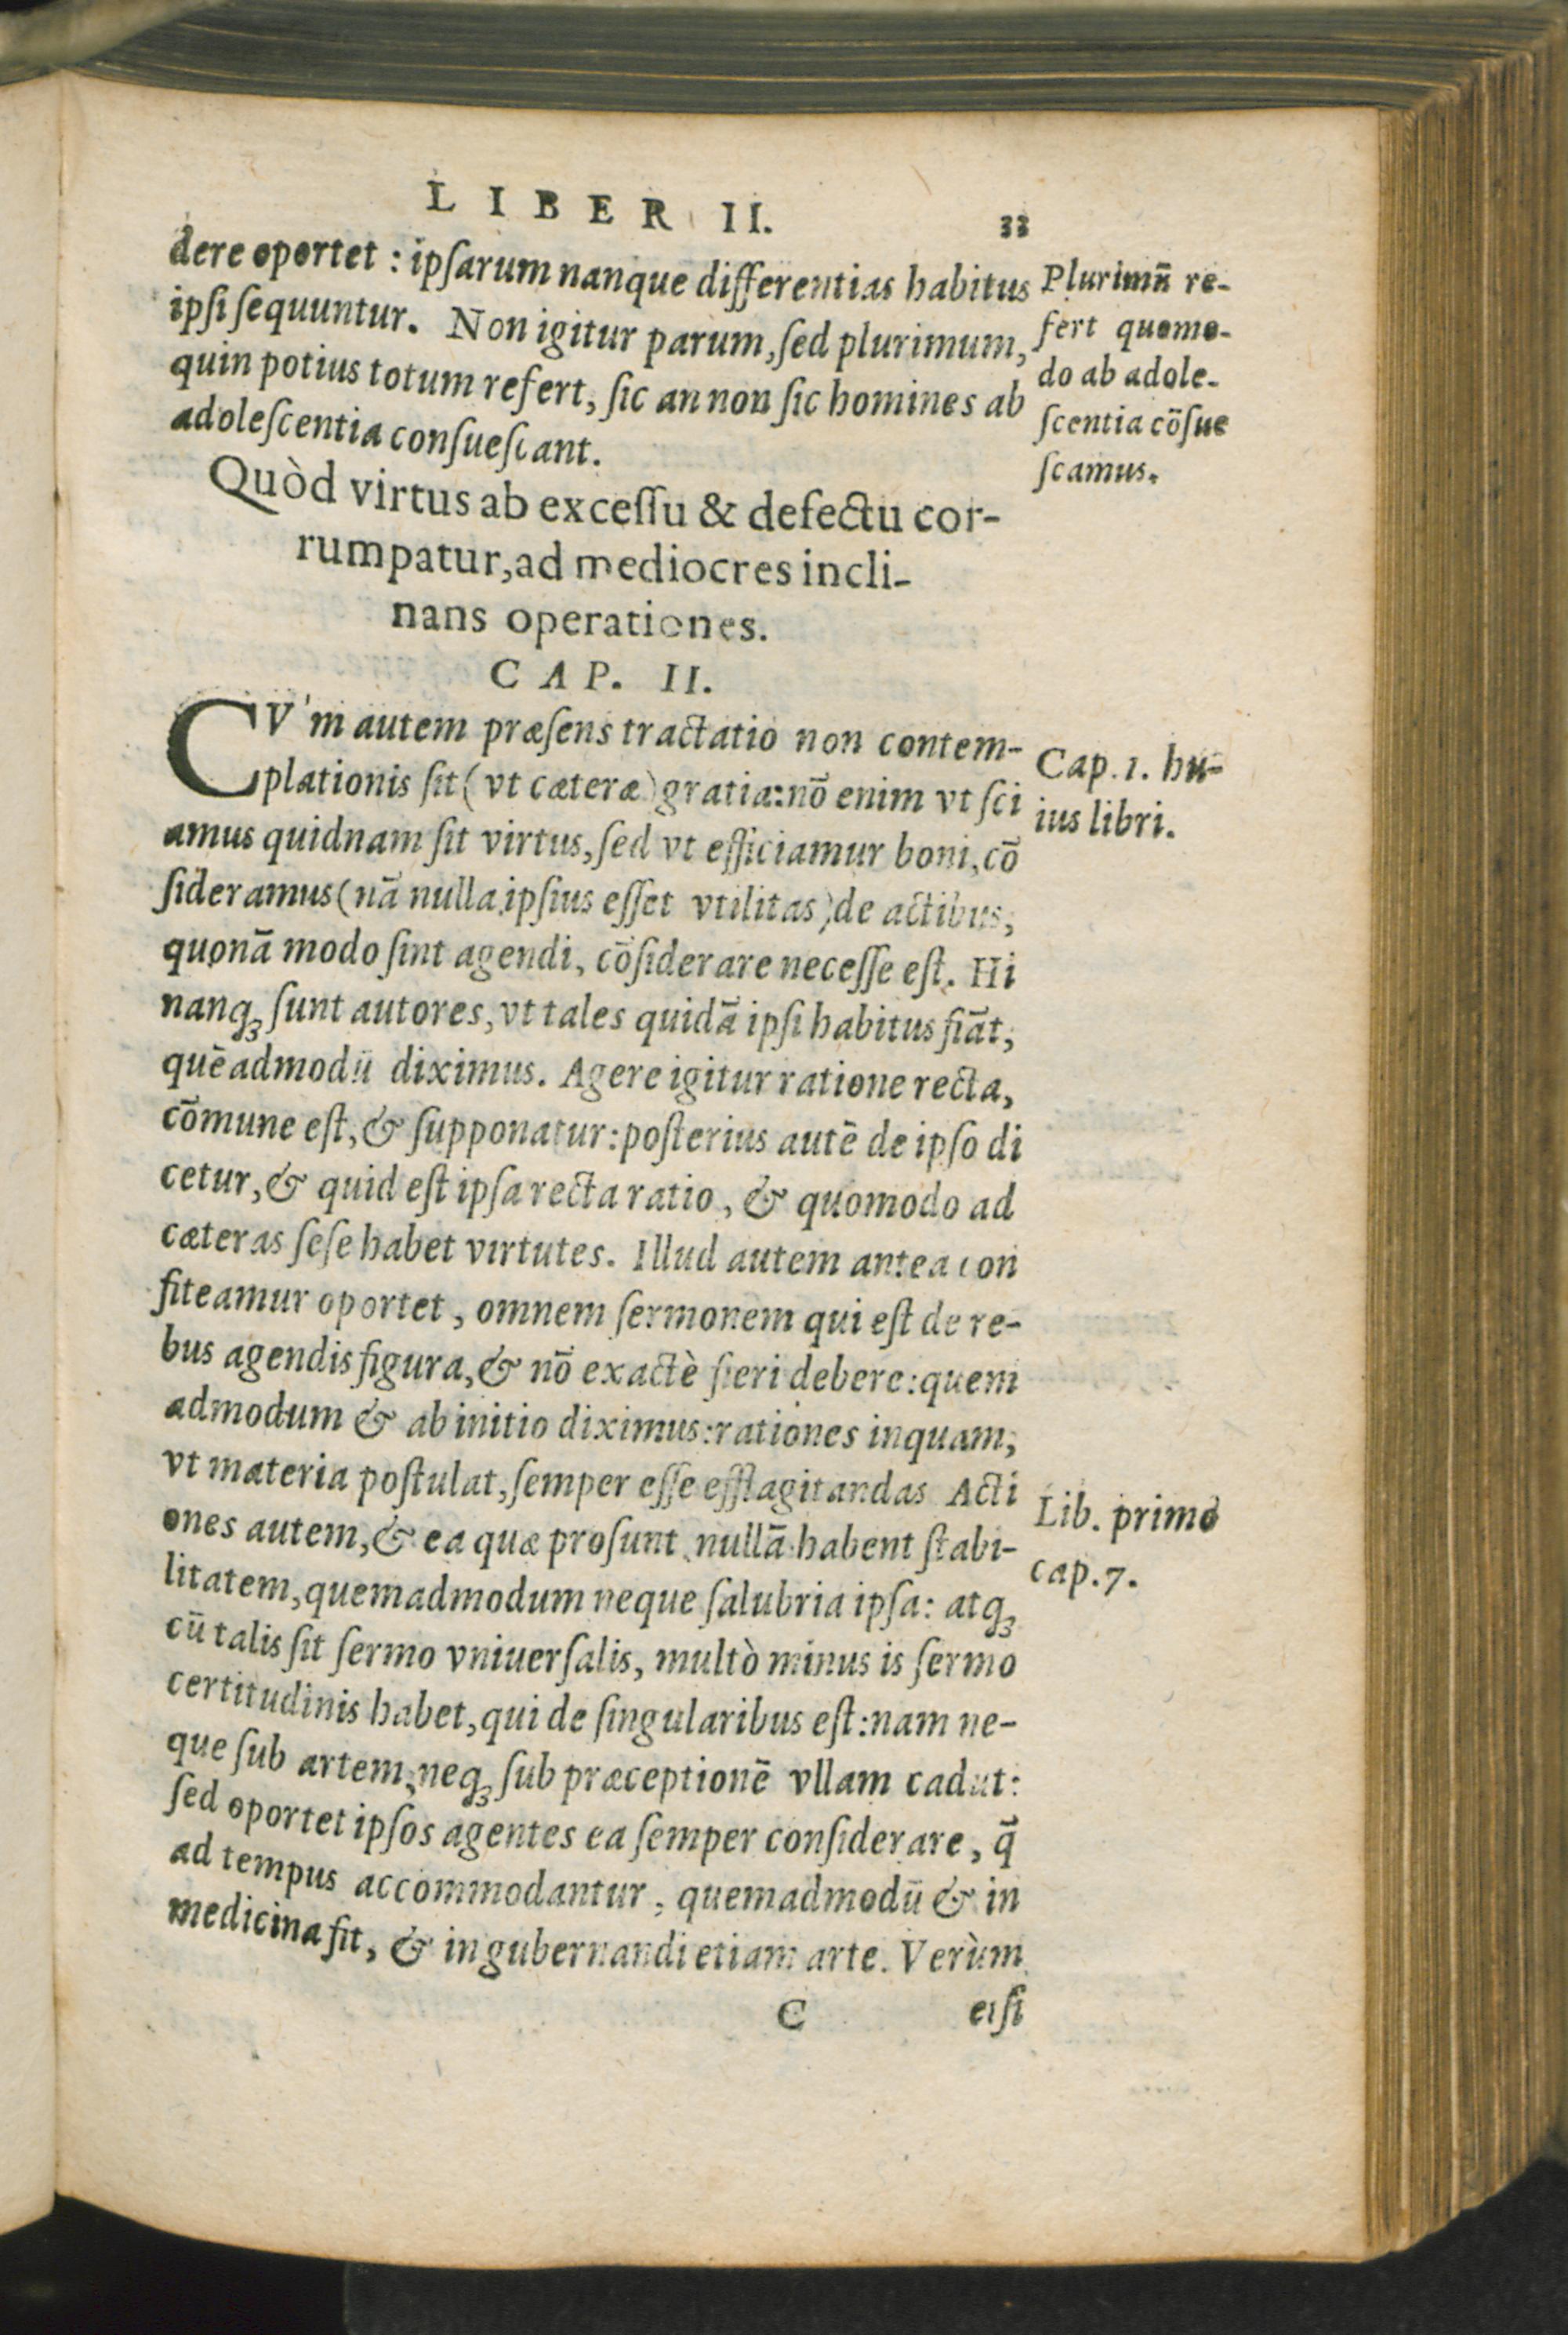 LIBER II. 33
dere oportet : ipſarum nanque differentias habitus
ipſi ſequuntur. Non igitur parum, ſed plurimum,
quin potius totum refert, ſic an non ſic homines ab
adoleſcentia conſueſcant.
Plurimū re-
fert quomo-
do ab adole-
ſcentia cōſue
ſcamus.
Quòd virtus ab exceſſu & defectu cor-
rumpatur, ad mediocres incli-
nans operationes.
CAP. II.
CV'm autem præſens tractatio non contem-
plationis ſit (vt cæteræ) gratia: nō enim vt ſci
amus quidnam ſit virtus, ſed vt efficiamur boni, cō
ſideramus (nā nulla ipſius eſſet vtilitas) de actibus,
quonā modo ſint agendi, cōſiderare neceſſe eſt. Hi
nanqꝫ ſunt autores, vt tales quidā ipſi habitus fiāt,
quēadmodū diximus. Agere igitur ratione recta,
cōmune eſt, & ſupponatur: poſterius autē de ipſo di
cetur, & quid eſt ipſa recta ratio, & quomodo ad
cæteras ſeſe habet virtutes. Illud autem antea con
fiteamur oportet, omnem ſermonem qui eſt de re-
bus agendis figura, & nō exactè fieri debere: quem
admodum & ab initio diximus: rationes inquam,
vt materia poſtulat, ſemper eſſe efflagitandas Acti
ones autem, & ea quæ proſunt nullā habent ſtabi-
litatem, quemadmodum neque ſalubria ipſa: atqꝫ
cū talis ſit ſermo vniuerſalis, multò minus is ſermo
certitudinis habet, qui de ſingularibus eſt: nam ne-
que ſub artem, neqꝫ ſub præceptionē vllam cadut:
ſed oportet ipſos agentes ea ſemper conſiderare, q̄
ad tempus accommodantur, quemadmodū & in
medicina fit, & in gubernandi etiam arte. Verùm
Cap. 1. hu-
ius libri.
Lib. primo
cap. 7.
C etſi